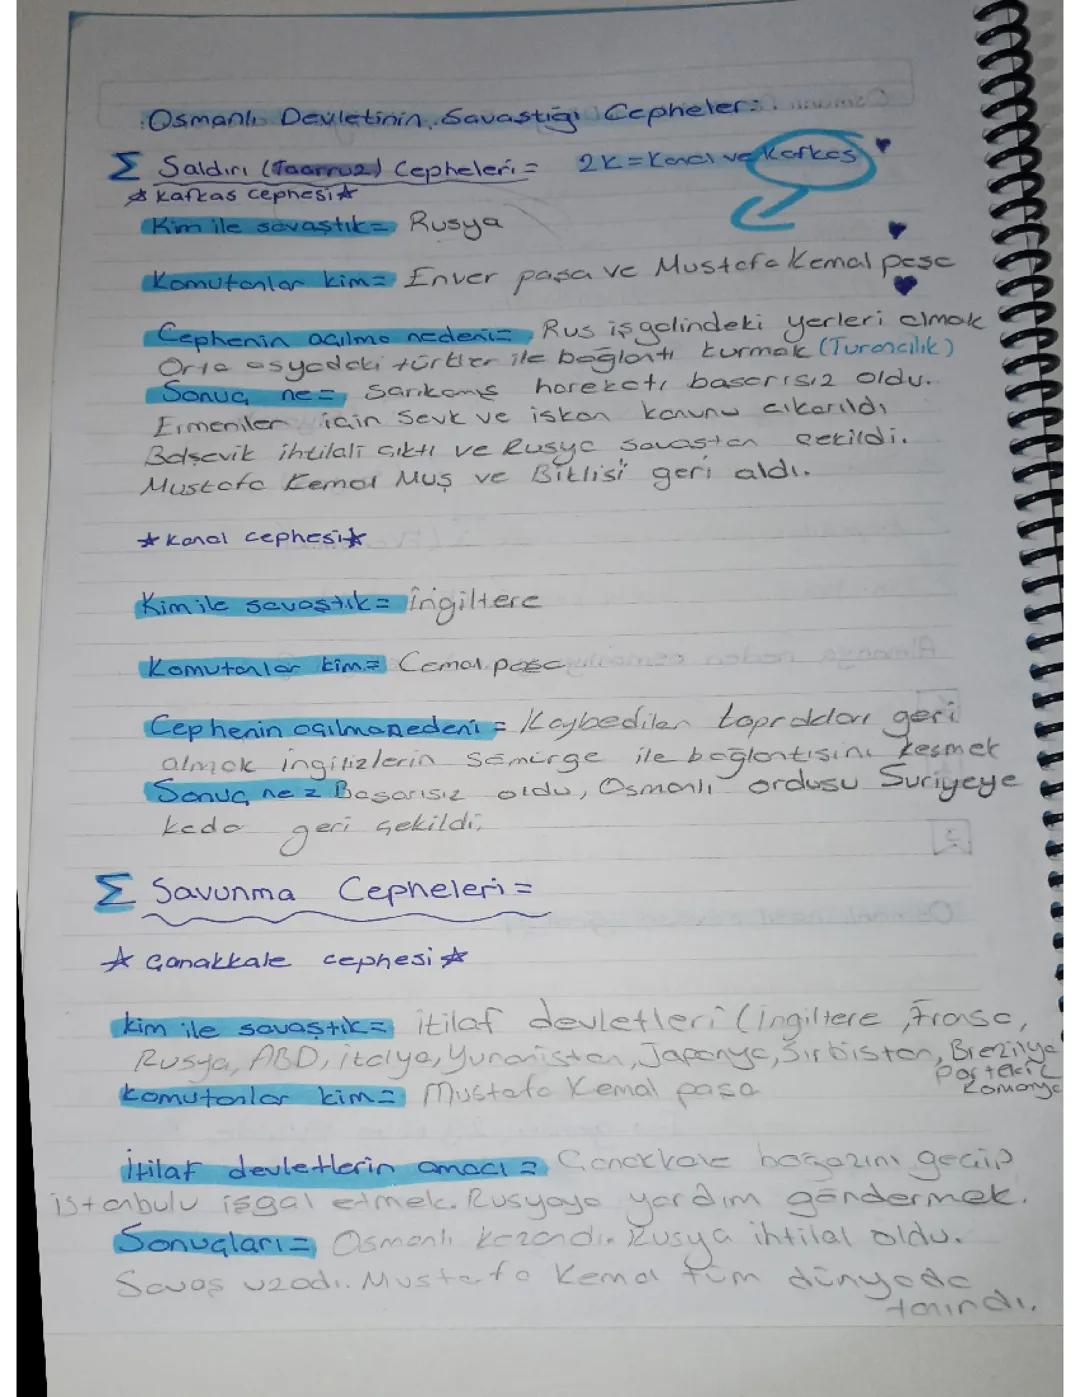 Osmanlı Devletinin Savaştığı Cepheler:
Σ Saldırı (Taarruz) Cepheleri = 2K = Kanal ve Kafkas
☆ Kafkas cephesi ☆
Kim ile savaştık = Rusya
Komutanlar kim = Enver paşa ve Mustafa Kemal paşa
Cephenin açılma nedeni = Rus işgalindeki yerleri almak
Orta asyadaki türkler ile bağlantı kurmak (Turancılık)
Sonuç ne = Sarıkamış harekatı başarısız oldu.
Ermeniler için Sevk ve iskan kanunu çıkarıldı
Bolşevik ihtilali çıktı ve Rusya savaştan çekildi.
Mustafa Kemal Muş ve Bitlisi geri aldı.
☆ Kanal cephesi ☆
Kim ile savaştık = İngiltere
Komutanlar kim = Cemal paşa
Cephenin açılma nedeni = Kaybedilen toprakları geri
almak ingilizlerin sömürge ile bağlantısını kesmek
Sonuç ne = Başarısız oldu, Osmanlı ordusu Suriyeye
kada geri çekildi,
Σ Savunma Cepheleri =
☆ Çanakkale cephesi ☆
kim ile savaştık = itilaf devletleri (ingiltere, Frasa,
Rusya, ABD, italya, Yunanistan, Japonya, Sırbistan, Brezilya
Portekiz
Romanya
komutanlar kim = Mustafa Kemal paşa
İtilaf devletlerin amacı = Çanakkale boğazını geçip
istanbulu işgal etmek. Rusyaya yardım göndermek.
Sonuçları = Osmanlı kazandı. Rusya ihtilal oldu.
Savaş uzadı. Mustafa Kemal tüm dünyada
tanındı.